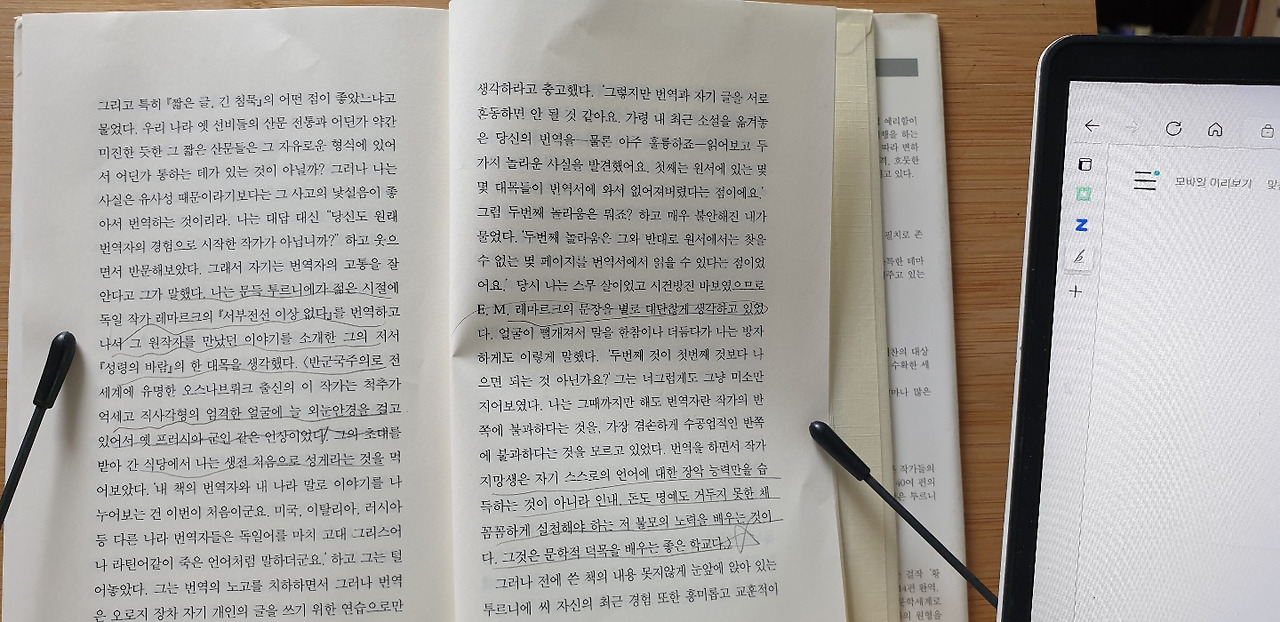 그리고 특히 『짧은 글, 긴 침묵』의 어떤 점이 좋았느냐고
물었다. 우리 나라 옛 선비들의 산문 전통과 어딘가 약간
미진한 듯한 그 짧은 산문들은 그 자유로운 형식에 있어
서 어딘가 통하는 데가 있는 것이 아닐까? 그러나 나는
사실은 유사성 때문이라기보다는 그 사고의 낯설음이 좋
아서 번역하는 것이리라. 나는 대답 대신 "당신도 원래
번역자의 경험으로 시작한 작가가 아닙니까?" 하고 웃으
면서 반문해보았다. 그래서 자기는 번역자의 고통을 잘
안다고 그가 말했다. 나는 문득 투르니에가 젊은 시절에
독일 작가 레마르크의 『서부전선 이상 없다』를 번역하고
나서 그 원작자를 만났던 이야기를 소개한 그의 저서
『성령의 바람』의 한 대목을 생각했다. 〈반군국주의로 전
세계에 유명한 오스나브뤼크 출신의 이 작가는 척추가
억세고 직사각형의 엄격한 얼굴에 늘 외눈안경을 걸고
있어서 옛 프러시아 군인 같은 인상이었다. 그의 초대를
받아 간 식당에서 나는 생전 처음으로 성게라는 것을 먹
어보았다. '내 책의 번역자와 내 나라 말로 이야기를 나
누어보는 건 이번이 처음이군요. 미국, 이탈리아, 러시아
등 다른 나라 번역자들은 독일어를 마치 고대 그리스어
나 라틴어같이 죽은 언어처럼 말하더군요.' 하고 그는 털
어놓았다. 그는 번역의 노고를 치하하면서 그러나 번역
은 오로지 장차 자기 자신의 글을 쓰기 위한 연습으로만
생각하라고 충고했다. '그렇지만 번역과 자기 글을 서로
혼동하면 안 될 것 같아요. 가령 내 최근 소설을 옮겨놓
은 당신의 번역을—물론 아주 훌륭하죠—읽어보고 두
가지 놀라운 사실을 발견했어요. 첫째는 원서에 있는 몇
몇 대목들이 번역서에 와서 없어져버렸다는 점이에요.'
그럼 두번째 놀라움은 뭐죠? 하고 매우 불안해진 내가
물었다. '두번째 놀라움은 그와 반대로 원서에서는 찾을
수 없는 몇 페이지를 번역서에서 읽을 수 있다는 점이었
어요.' 당시 나는 스무 살이었고 시건방진 바보였으므로
E. M. 레마르크의 문장을 별로 대단찮게 생각하고 있었
다. 얼굴이 빨개져서 말을 한참이나 더듬다가 나는 방자
하게도 이렇게 말했다. '두번째 것이 첫번째 것보다 나
으면 되는 것 아닌가요?' 그는 너그럽게도 그냥 미소만
지어보였다. 나는 그때까지만 해도 번역자란 작가의 반
쪽에 불과하다는 것을, 가장 겸손하게 수공업적인 반쪽
에 불과하다는 것을 모르고 있었다. 번역을 하면서 작가
지망생은 자기 스스로의 언어에 대한 장악 능력만을 습
득하는 것이 아니라 인내, 돈도 명예도 거두지 못한 채
꼼꼼하게 실천해야 하는 저 불모의 노력을 배우는 것이
다. 그것은 문학적 덕목을 배우는 좋은 학교다.〉
그러나 전에 쓴 책의 내용 못지않게 눈앞에 앉아 있는
투르니에 씨 자신의 최근 경험 또한 흥미롭고 교훈적이
모바일 미리보기